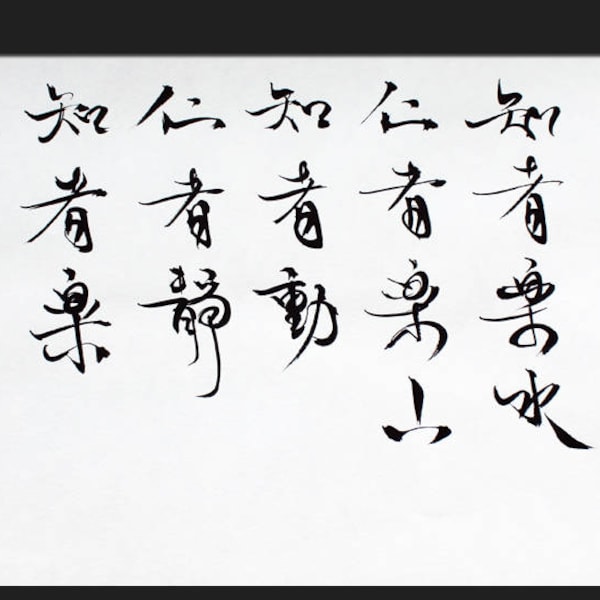 知者楽水
仁者楽山
知者動
仁者靜
知者楽